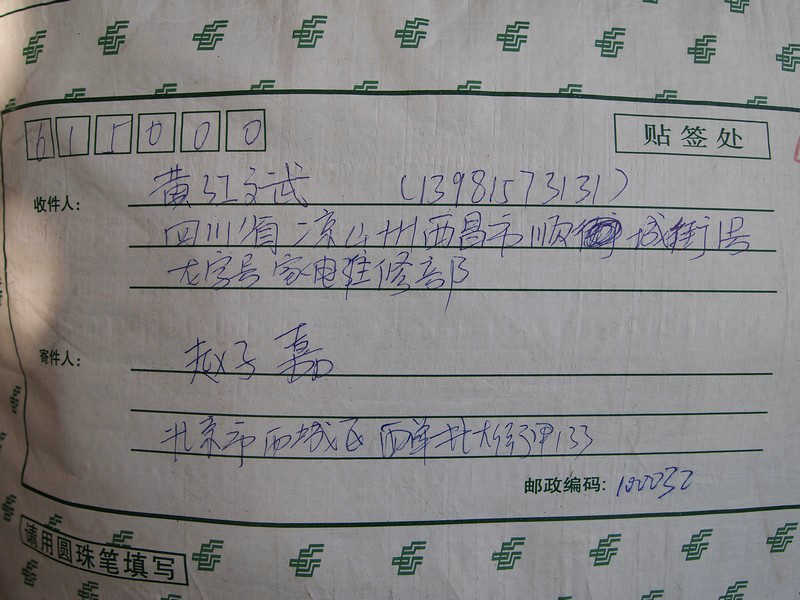 615000
贴签处
收件人: 黄江文武 (13981573131)
四川省凉山州西昌市顺城街
字号家电维修部
寄件人: 赵子嘉
北京市西城区西单北大街甲133
邮政编码: 100032
请用圆珠笔填写